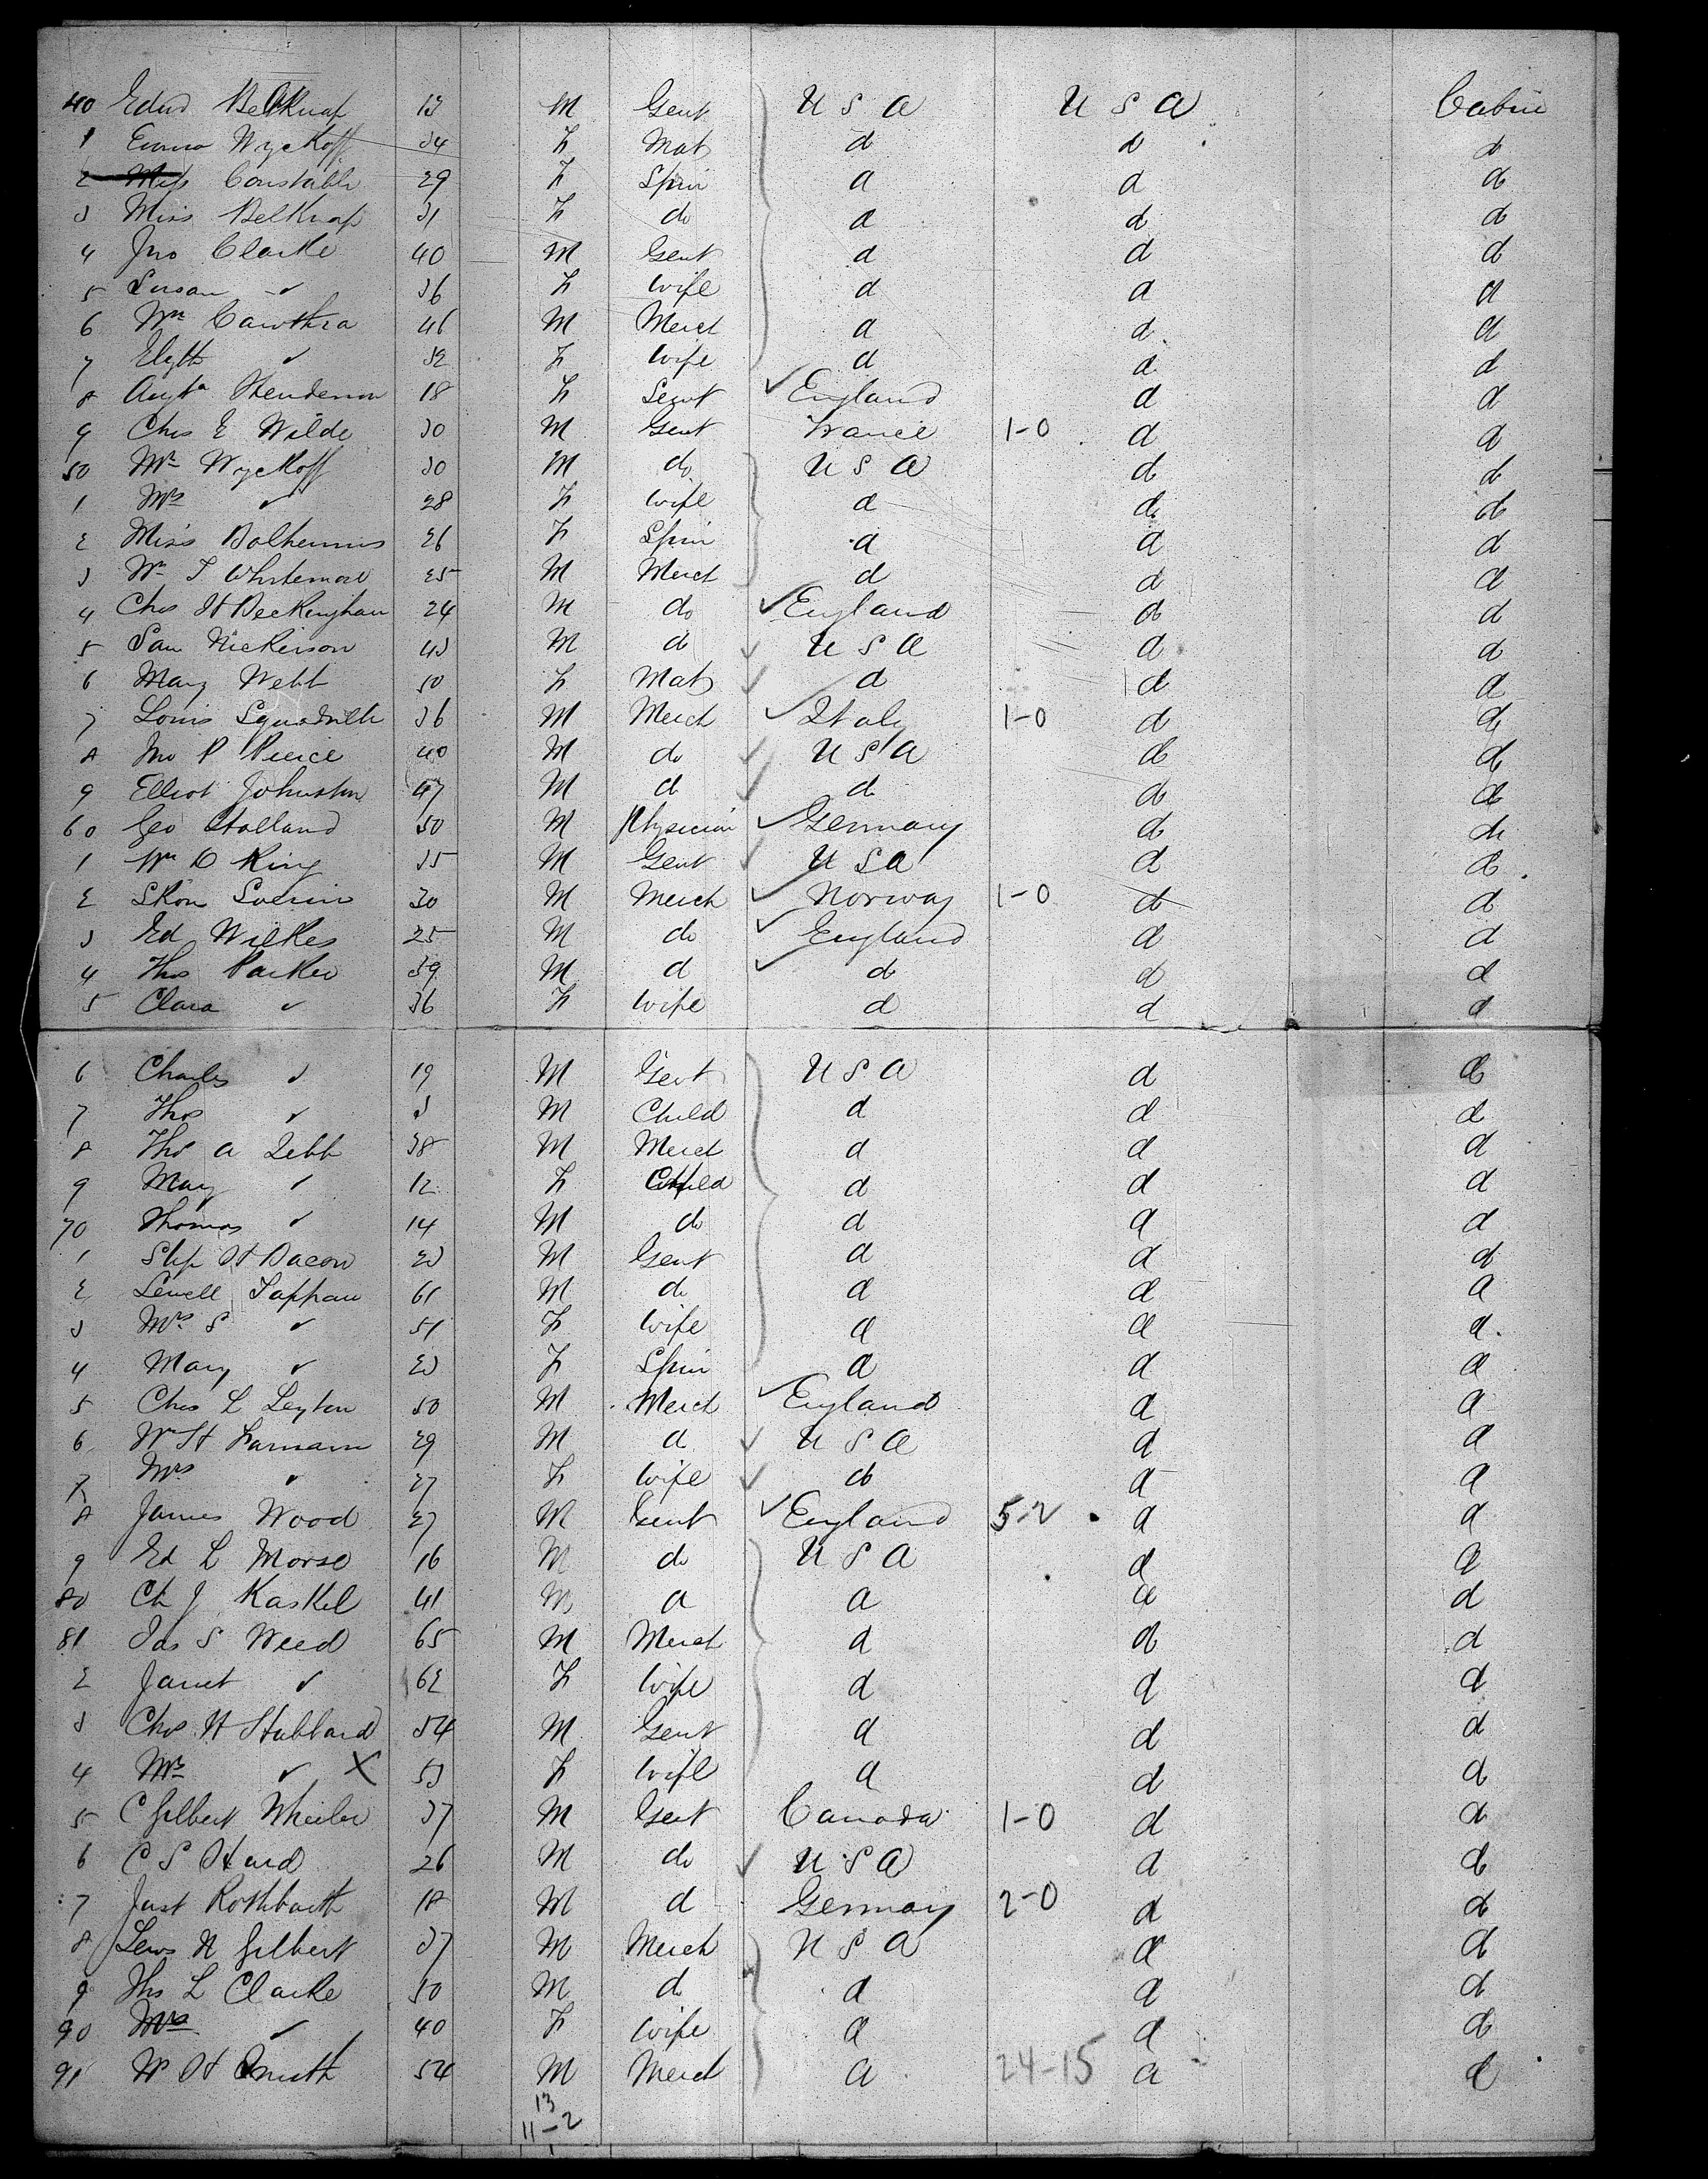 40 Edwd Belknap 13 M Gent U S A U S A Cabin
1 Emma Wyckoff 34 F Mat d d d
2 Miss Constable 29 F Spin d d d
3 Miss Belknap 31 F do d d d
4 Jno Clarke 40 M Gent d d d
5 Susan " 36 F Wife d d d
6 Wm Cawthra 46 M Merct d d d
7 " 32 F Wife d d d
8 Augta Henderson 18 F Servt England d d
9 Chs E Wilde 30 M Gent France 1-0 d d
50 Mr Wyckoff 30 M do U S A d d
1 Mrs " 28 F Wife d d d
2 Miss 26 F Spin d d d
3 Wm T Whitemore 25 M Merct d d d
4 Chs H Beckingham 24 M do England d d
5 Sam Nickerson 43 M d U S A d d
6 Mary Webb 50 F Mat d d d
7 Louis 36 M Merch Italy 1-0 d d
8 Jno P Peirce 40 M do U S A d d
9 Elliot Johnston 47 M d d d d
60 Geo Holland 50 M Physician Germany d d
1 Wm D King 35 M Gent U S A d d
2 30 M Merch Norway 1-0 d d
3 Ed Wilkes 25 M do England d d
4 Ths Parker 39 M d d d d
5 Clara " 36 F Wife d d d
6 Charles " 19 M Gent U S A d d
7 Ths " 3 M Child d d d
8 Ths A 38 M Merct d d d
9 Mary " 12 F Child d d d
70 Thomas " 14 M do d d d
1 Step H Bacon 23 M Gent d d d
2 Sewell Tappan 61 M do d d d
3 Mrs S " 51 F Wife d d d
4 Mary " 23 F Spin d d d
5 Chs L Leyton 50 M Merch England d d
6 W H Farnam 29 M d U S A d d
7 Mrs " 27 F Wife do d d
8 James Wood 27 M Gent England 5-2 d d
9 Ed L Morse 16 M do U S A d d
80 Ch J Kaskel 41 M d d d d
81 Jas S Weed 65 M Merct d d d
2 Janet " 62 F Wife d d d
3 Chs H Hubbard 54 M Gent d d d
4 Mrs " X 53 F Wife d d d
5 C Gilbert Wheeler 37 M Gent Canada 1-0 d d
6 C S Hard 26 M do U S A d d
7 Just Rothbarth 18 M d Germany 2-0 d d
8 Lews N Gilbert 37 M Merch U S A d d
9 Ths L Clarke 50 M d d d d
90 Mrs " 40 F Wife d d d
91 W H Smith 54 M Merct d 24-15 d d
13
11-2
1